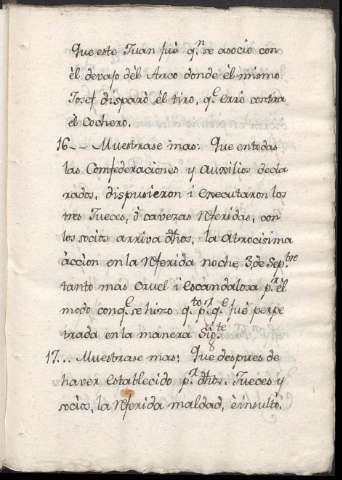 Que este Juan fue q.n se asociò con
èl devajo dèl Arco donde èl mismo
Jo:ef disparò èl tiro, q.e errò contra
èl Cochero.
16.. Muestrase mas: Que en todas
las Confederaciones y Auxilios decla
rados, dispusieron i executaron los
tres Jueces, ò cavezas Rferidas, con
los socios arriva dhos, la atrocisima
àccion en la Rferida noche 3,, de Sep.tre
tanto màs cruel i escandalosa p.r èl
modo con q.e se hizo q.to p.r q.e fuè perpe
trada en la manera Sig.te
17... Muestrase mas: Que despues de
haver establecido p.r dhos. Jueces y
socios, la Rferida maldad, è insulto.